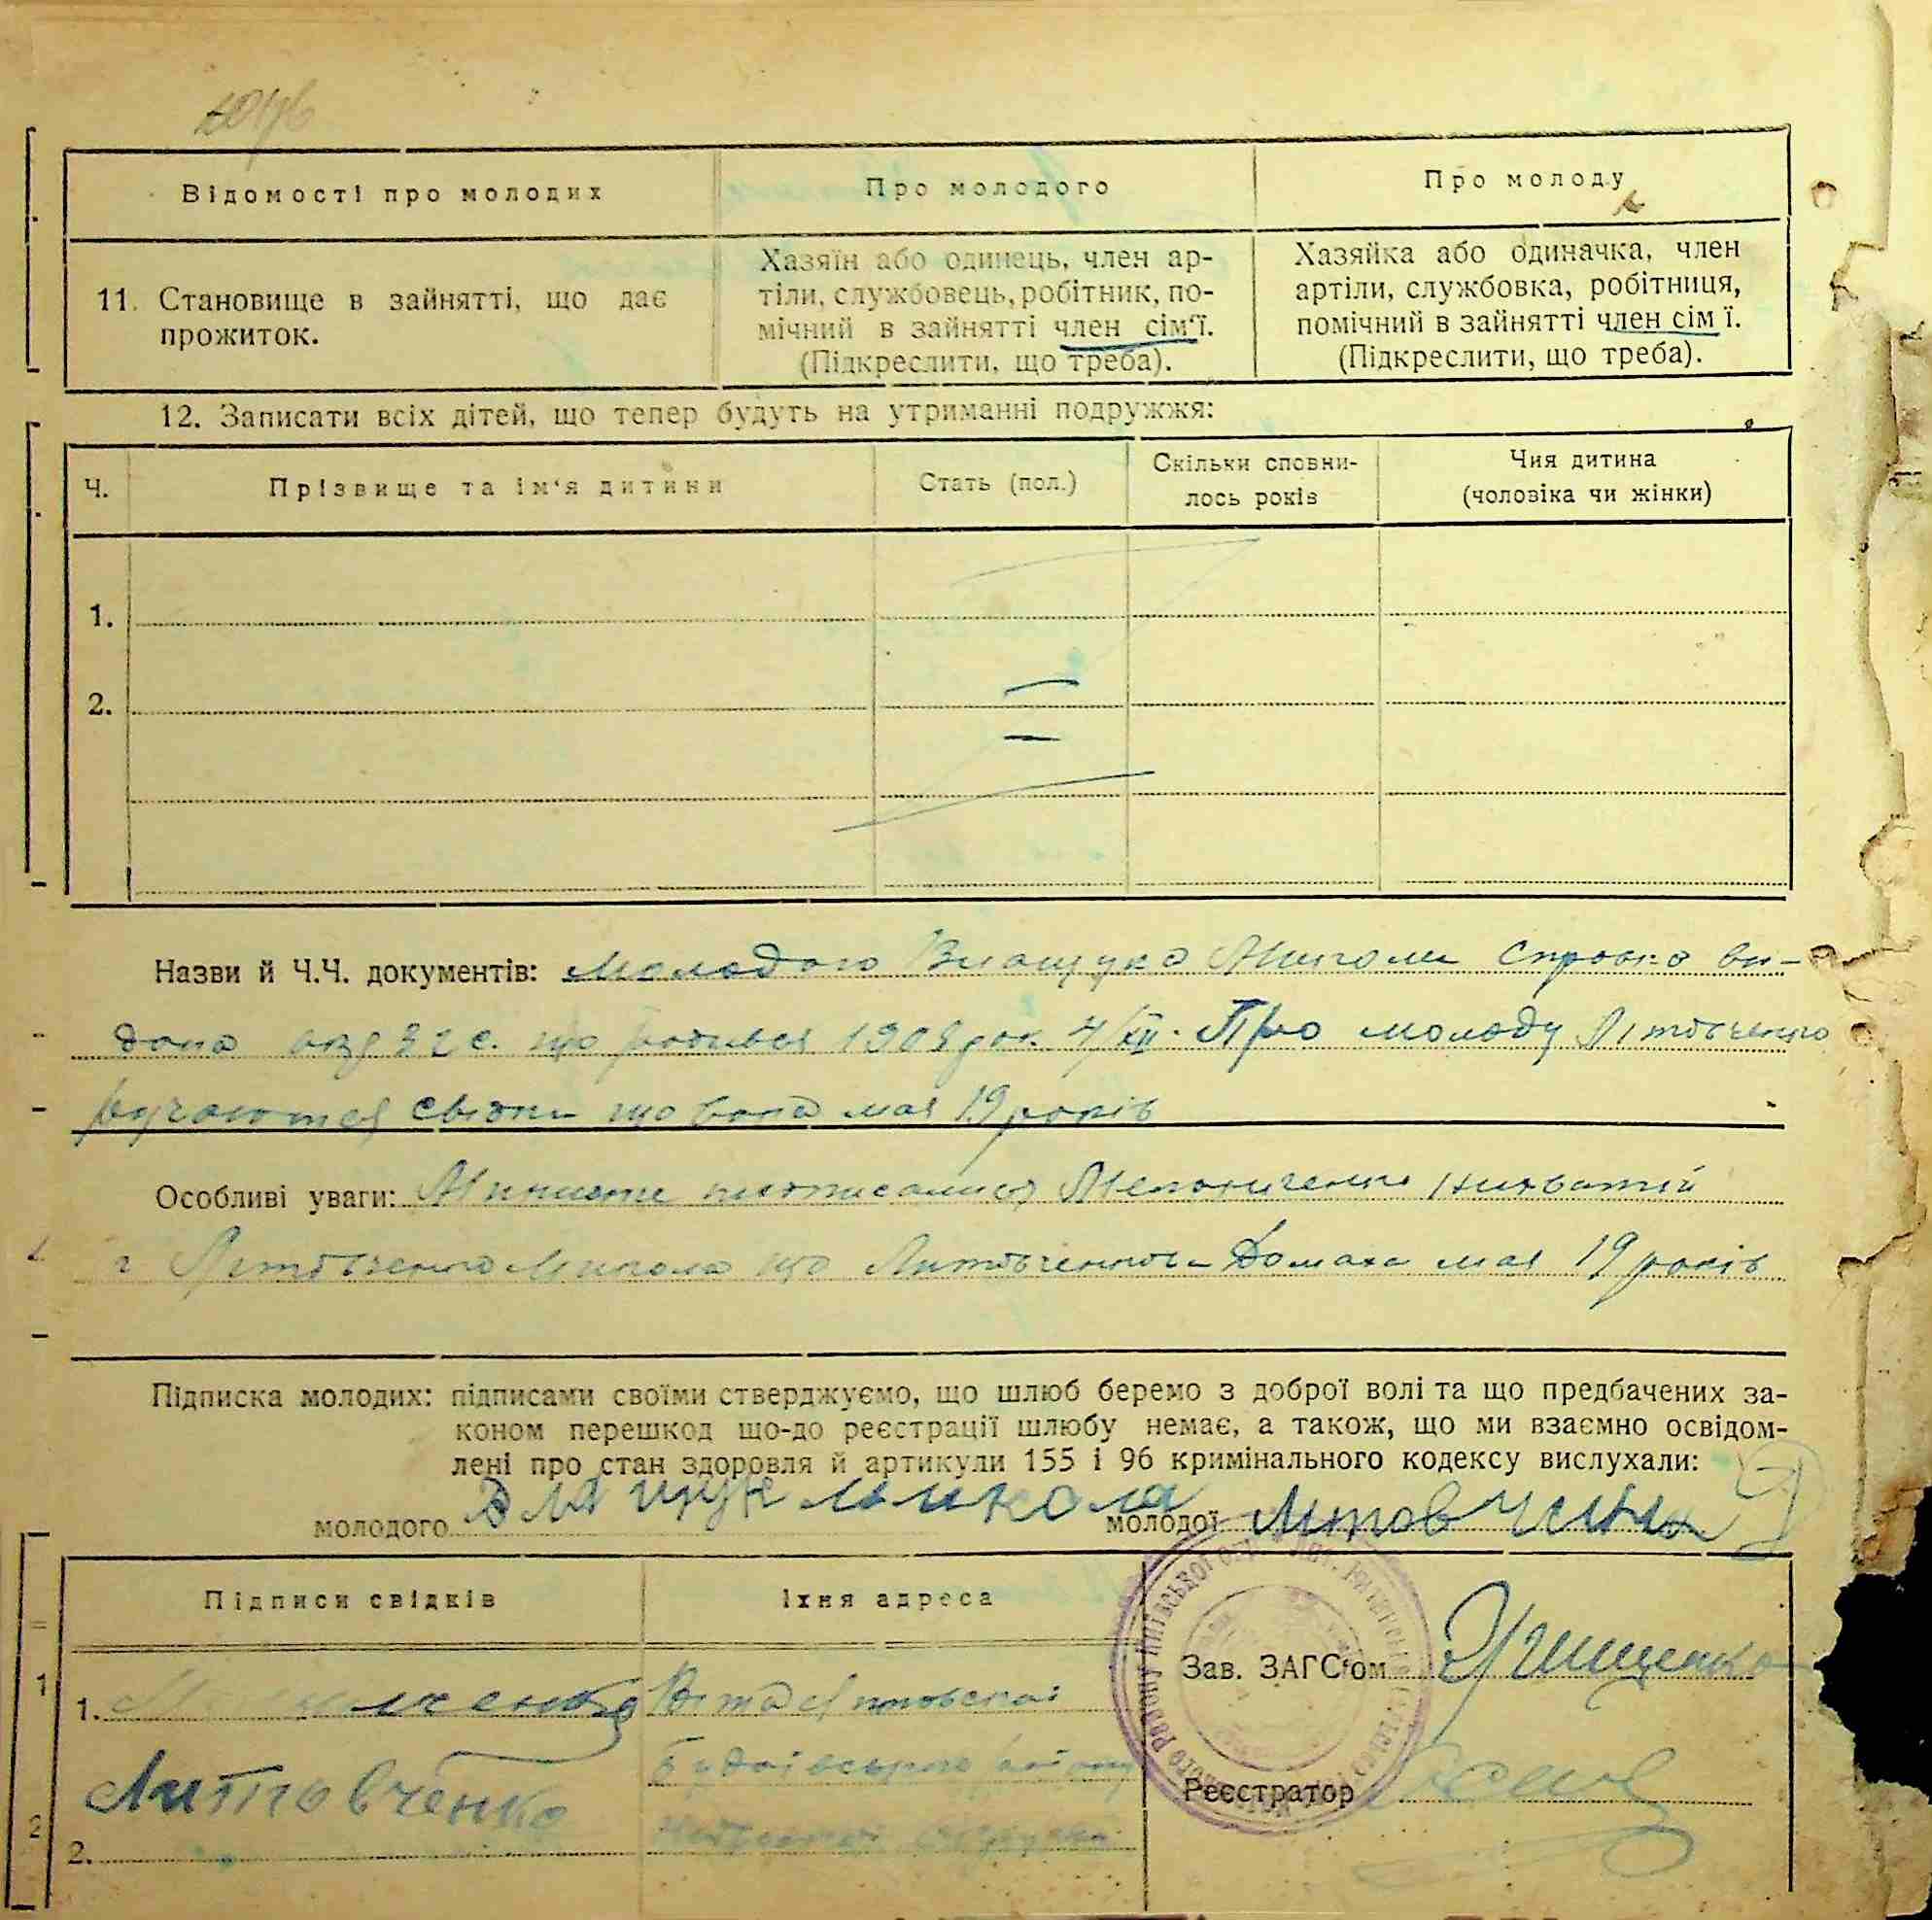 Відомості про молодих
Про молодого
Про молоду
11. Становище в зайнятті, що дає
прожиток.
Хазяїн або одинець, член ар-
тіли, службовець, робітник, по-
мічний в зайнятті член сім'ї.
(Підкреслити, що треба).
Хазяйка або одиначка, член
артіли, службовка, робітниця,
помічний в зайнятті член сім ї.
(Підкреслити, що треба).
12. Записати всіх дітей, що тепер будуть на утриманні подружжя:
Ч.
Прізвище та ім'я дитини
Стать (пол.)
Скільки сповни-
лось років
Чия дитина
(чоловіка чи жінки)
1.
2.
Назви й Ч.Ч. документів: молодого Власчука Миколи справка ви-
дана що родився 1908 рок. 4/XII. Про молоду Літовченко
ручаются свідки що вона мая 19 років
Особливі уваги:
Літовченко Микола що Литовченкова Домаха мая 19 років
Підписка молодих: підписами своїми стверджуємо, що шлюб беремо з доброї волі та що предбачених за-
коном перешкод що-до реєстрації шлюбу немає, а також, що ми взаємно освідом-
лені про стан здоровля й артикули 155 і 96 кримінального кодексу вислухали:
молодого Микола молодої
Підписи свідків
Їхня адреса
1.
Литовченко
2.
Зав. ЗАГС'ом Грищенко
Реєстратор